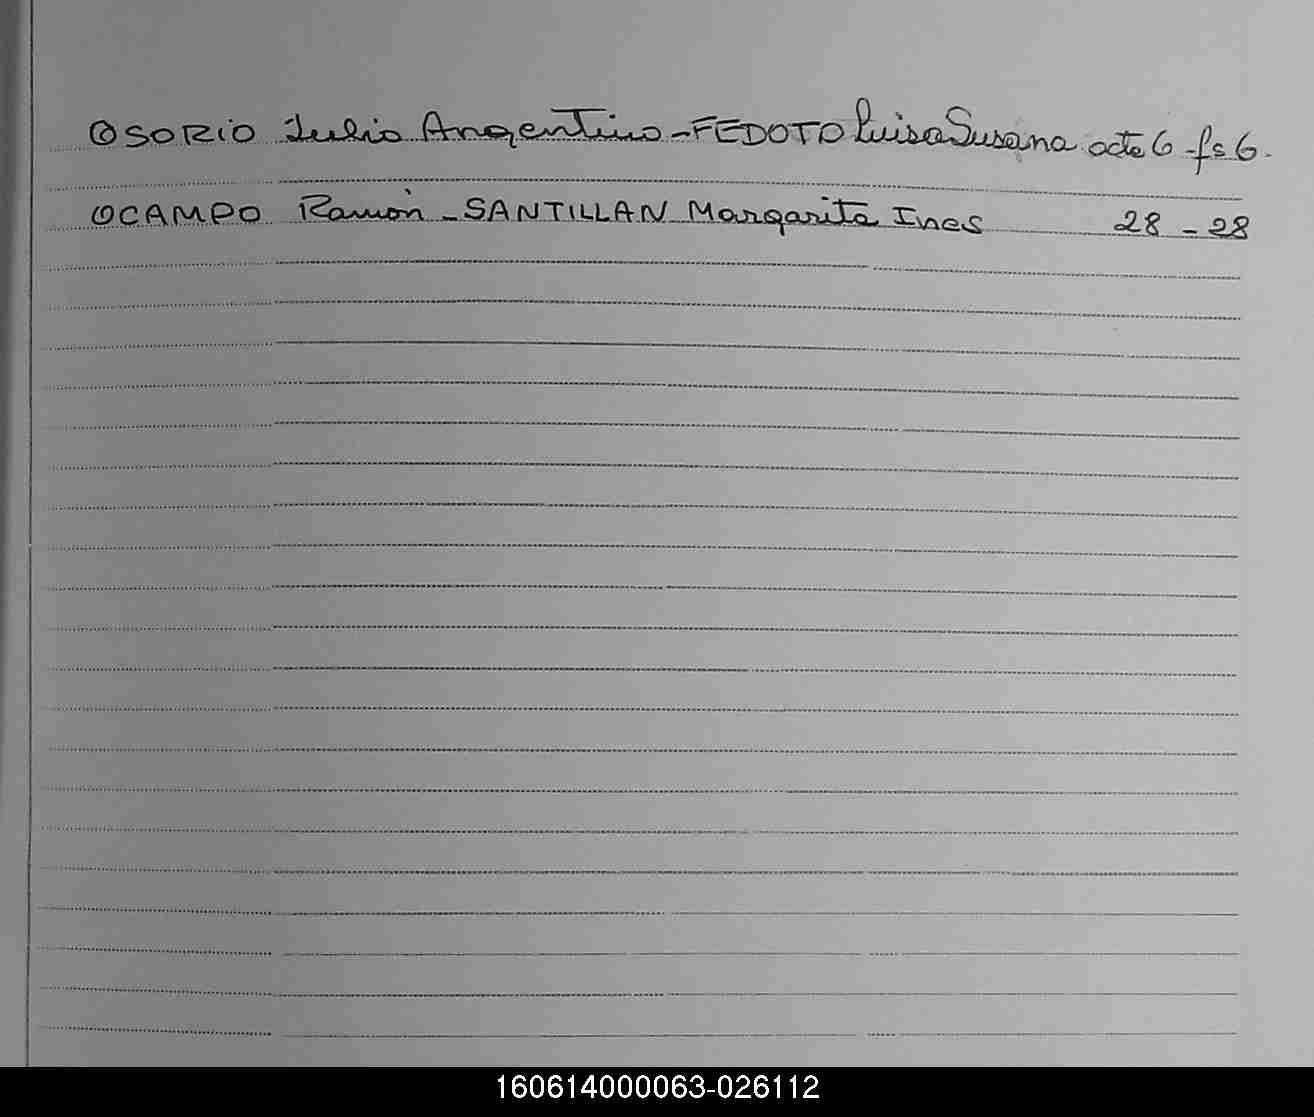 OSORIO Julio Argentino - FEDOTO Luisa Susana acta 6 - fs 6.
OCAMPO Ramón - SANTILLAN Margarita Ines 28 - 28
160614000063-026112